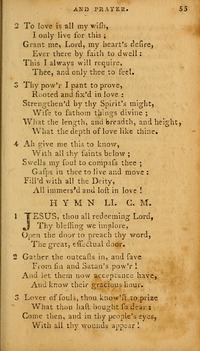 AND PRAYER. 55
2 To love is all my wiſh,
I only live for this;
Grant me, Lord, my heart's deſire,
Ever there by faith to dwell:
This I always will require,
Thee, and only thee to feel.
3 Thy pow'r I pant to prove,
Rooted and fix'd in love:
Strengthen'd by thy Spirit's might,
Wiſe to fathom things divine;
What the length, and breadth, and height,
What the depth of love like thine.
4 Ah give me this to know,
With all thy ſaints below;
Swells my ſoul to compaſs thee;
Gaſps in thee to live and move:
Fill'd with all the Deity,
All immers'd and loſt in love!
HYMN LI. C. M.
1 JESUS, thou all redeeming Lord,
Thy bleſſing we implore,
Open the door to preach thy word,
The great, effectual door.
2 Gather the outcaſts in, and ſave
From ſin and Satan's pow'r!
And let them now acceptance have,
And know their gracious hour.
3 Lover of ſouls, thou know'ſt to prize
What thou haſt bought ſo dear:
Come then, and in thy people's eyes,
With all thy wounds appear!